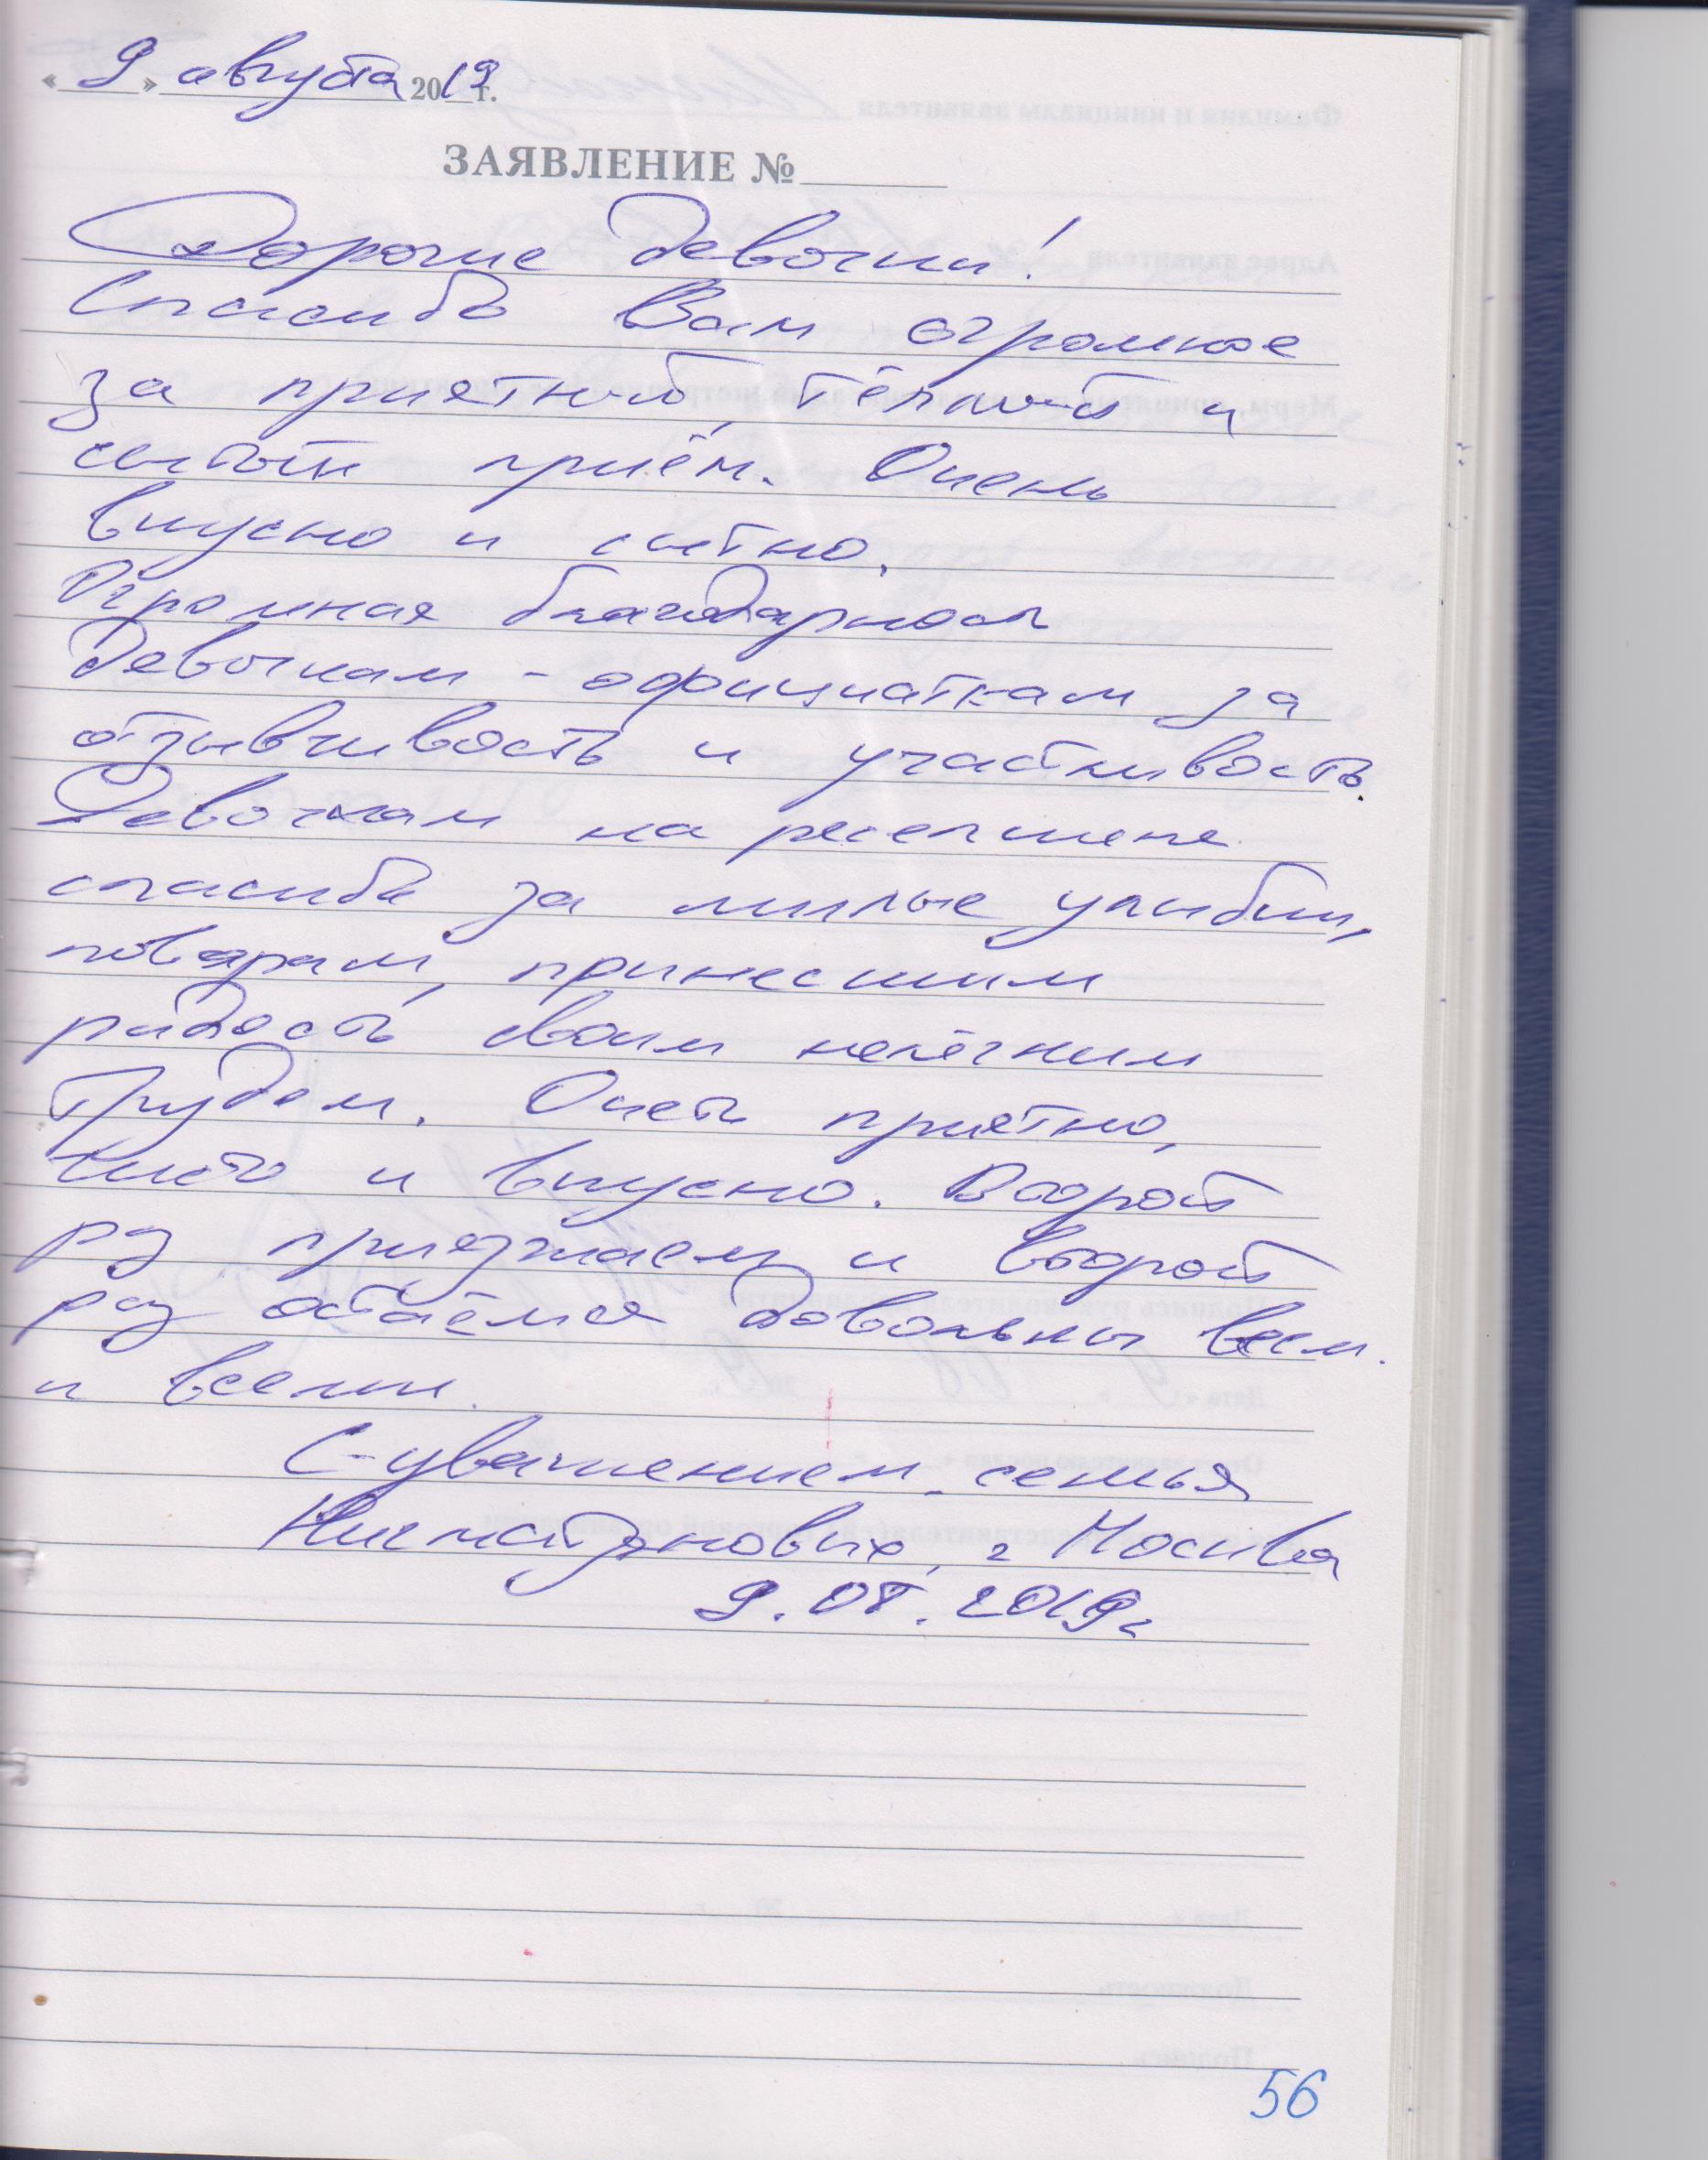 « 9 » августа 2019 г.
ЗАЯВЛЕНИЕ №
Дорогие девочки!
Спасибо Вам огромное
за приятный, тёплый и
сытый приём. Очень
вкусно и сытно.
Огромная благодарность
девочкам - официаткам за
отзывчивость и участливость.
Девочкам на ресепшене
спасибо за милые улыбки,
поварам, принесшим
радость своим нелёгким
трудом. Очень приятно,
чисто и вкусно. Второй
раз приезжаем и второй
раз остаёмся довольны всем.
и всеми.
С уважением, семья
г Москва
9.08.2019г
56